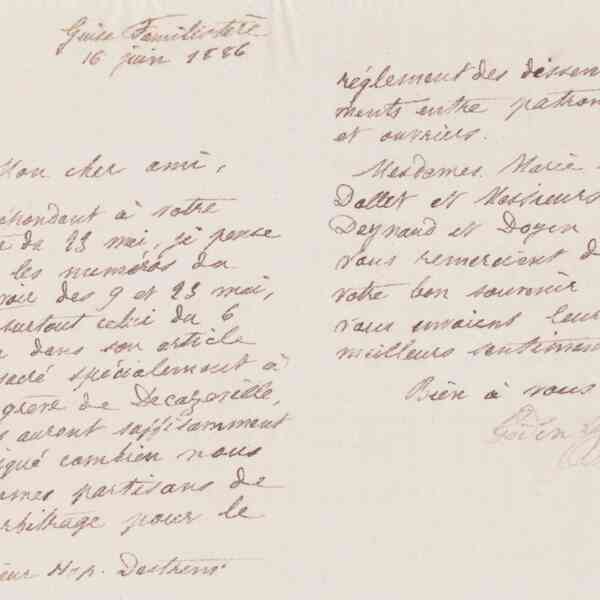 Guise Familistère
16 juin 1886
Mon cher ami,
répondant à votre
du 23 mai, je pense
les numéros du
voir des 9 et 23 mai,
surtout celui du 6
dans son article
sacré spécialement à
grève de Decazeville,
s auront suffisamment
iqué combien nous
ommes partisans de
arbitrage pour le
ieur Hip. Destrem
réglement des dissen
ments entre patron
et ouvriers.
Mesdames Marie
Dallet et Messieurs
Deynaud et Doyen
vous remercient d
votre bon souvenir
vous envoient leur
meilleurs sentiment
Bien à vous
Godin